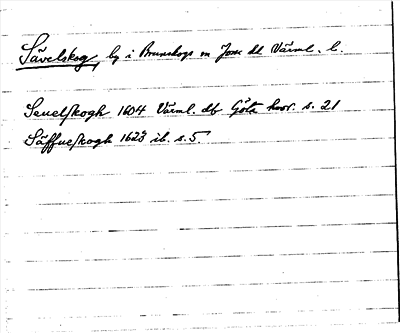 Sävelskog, by i Brunskogs sn Jösse hd Värml. l.
Seuelskogh 1604 Värml. db Göta hovr. s. 21
Säffueskogh 1628 ib. s. 5.